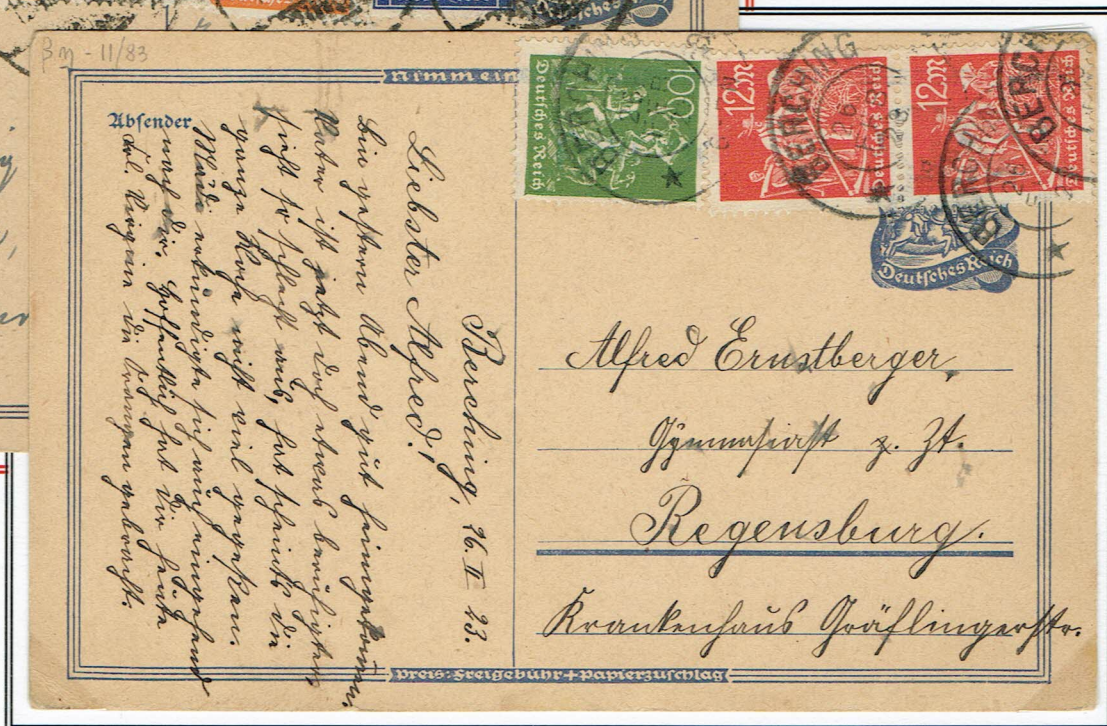 β η - 11/83
Nimm ein
Absender
Deutsches Reich
100
BERCHING
12 M
Deutsches Reich
BERCHING
12 M
Deutsches Reich
BERCHING
BERCHING
Deutsches Reich
Berching, 26. II 23.
Liebster Alfred!
Bin gestern Abend gut heimgekommen.
Vater ist jetzt doch etwas beruhigter,
sieht so schlecht aus, hat scheints die
ganze Woche nicht viel gegessen.
erkundigte sich auch eingehend
nach dir. Hoffentlich hat dir heute
Frl. die Orangen gebracht.
Alfred Ernstberger,
Gymnasiast z. Zt.
Regensburg.
Krankenhaus Gräflingerstr.
Preis: Freigebühr + Papierzuschlag